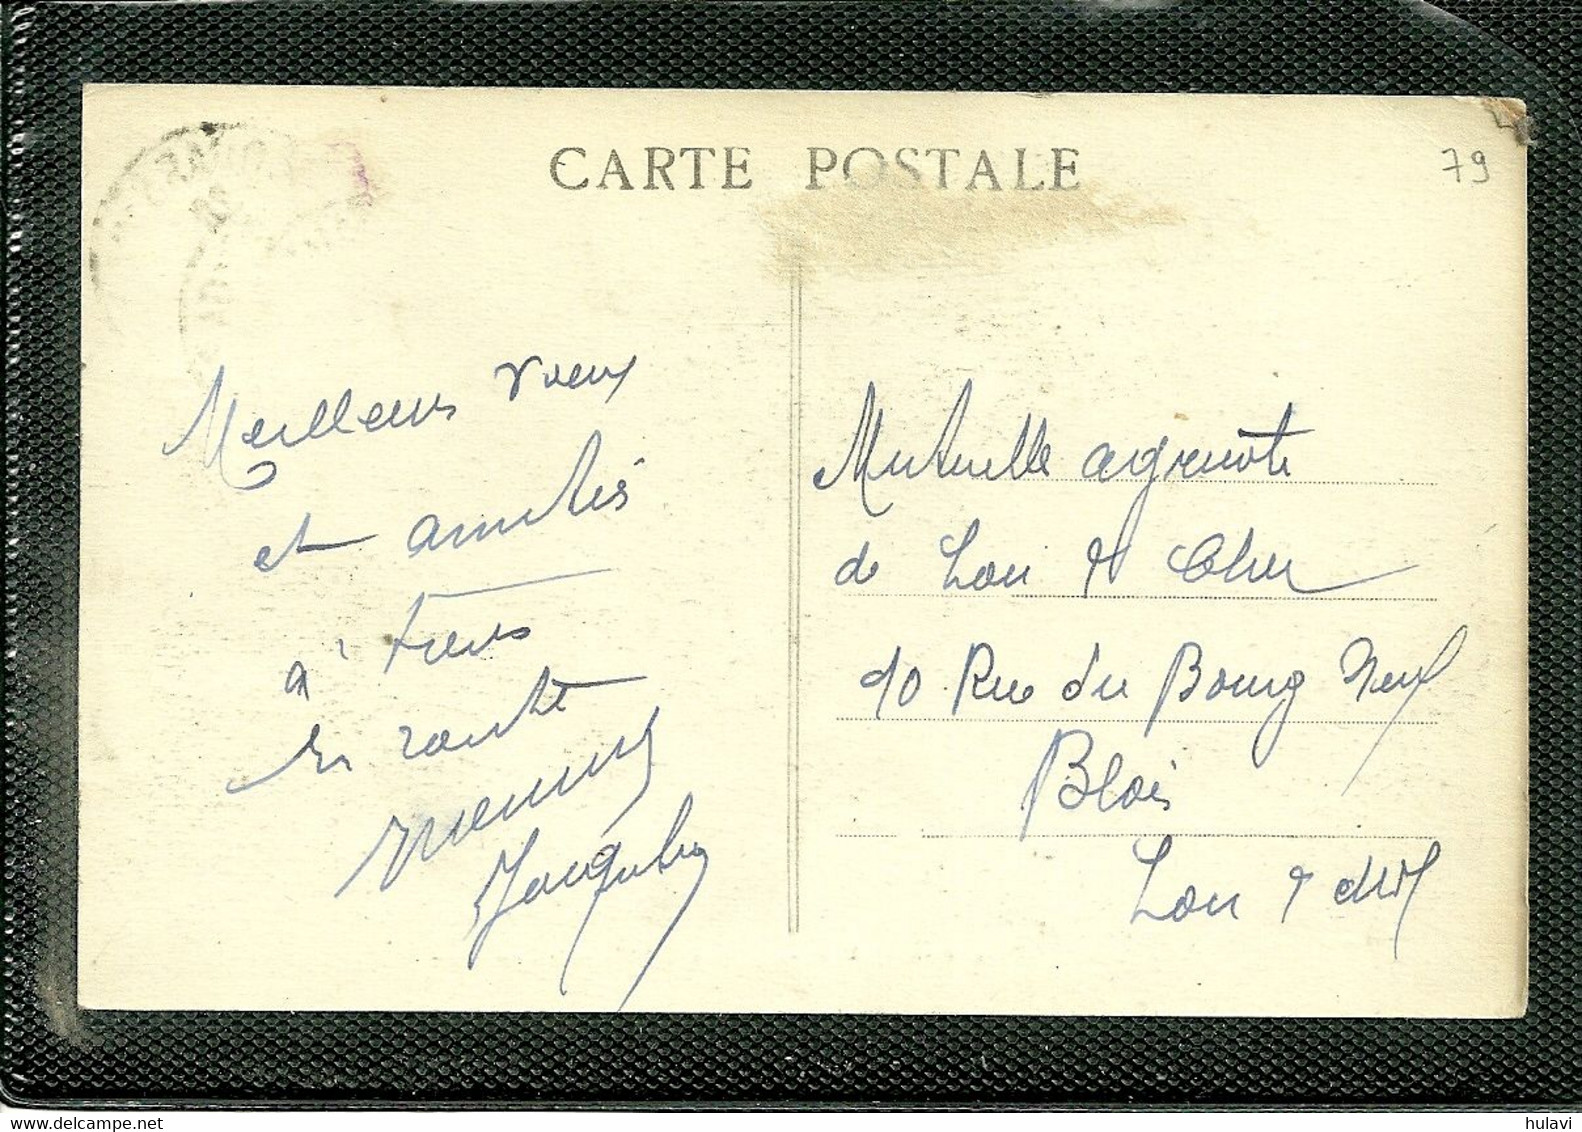 CARTE POSTALE
79
Meilleurs vœux
et amitiés
à tous
en route
Mutuelle agricole
de Loir & Cher
10 Rue du Bourg Neuf
Blois
Loir & Cher
delcampe.net
hulavi